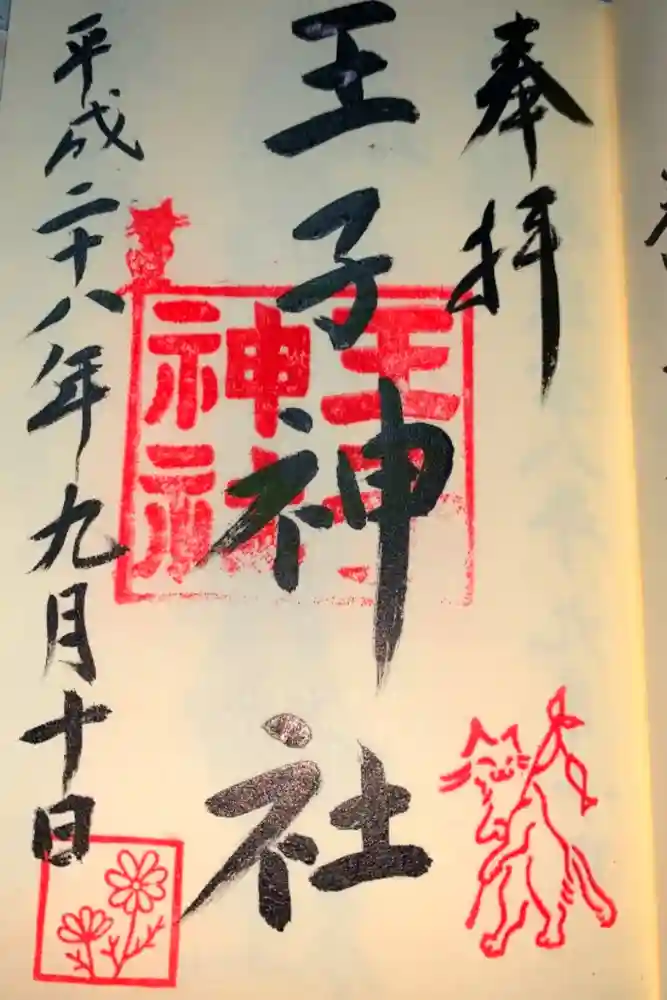 奉拝
王子神社
平成二十八年九月十日
王子神社